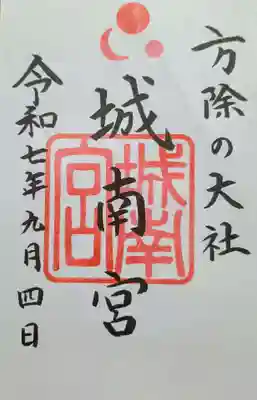 方除の大社
城南宮
城南宮
令和七年九月四日